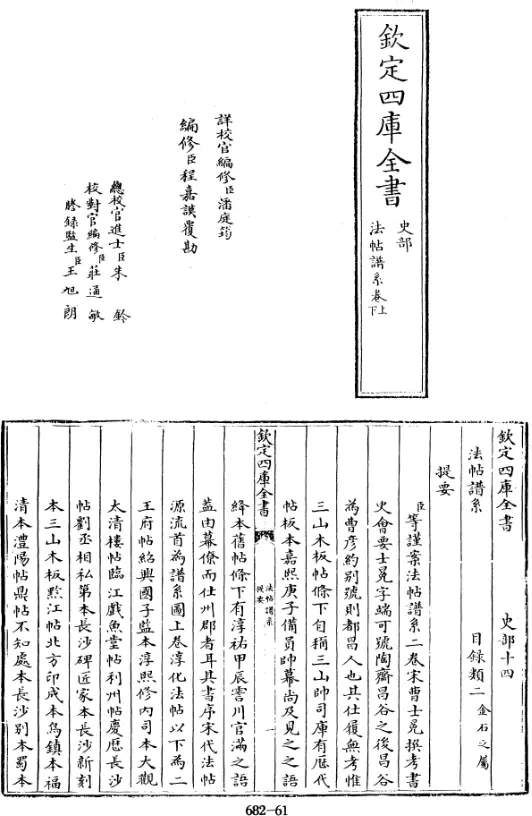 欽定四庫全書
史部
法帖譜系卷上下
詳校官編修臣潘庭筠
編修臣程嘉謨覆勘
總校官進士臣朱鈐
校對官編修臣莊通敏
謄録監生臣王旭朗
欽定四庫全書 史部十四
法帖譜系 目録類二金石之屬
提要
臣等謹案法帖譜系二卷宋曹士冕撰考書
史會要士冕字端可號陶齋昌谷之後昌谷
為曹彦約别號則都昌人也其仕履無考惟
三山木板帖條下自稱三山帥司庫有歴代
帖板本嘉熙庚子備員帥幕尚及見之之語
欽定四庫全書 法帖譜系提要 一
絳本舊帖條下有淳祐甲辰霅川官滿之語
葢由幕僚而仕州郡者耳其書序宋代法帖
源流首為譜系圖上卷淳化法帖以下為二
王府帖紹興國子監本淳熙修内司本大觀
太清樓帖臨江戲魚堂帖利州帖慶歴長沙
帖劉丞相私第本長沙碑匠家本長沙新刻
本三山木板黔江帖北方印成本烏鎮本福
清本澧陽帖鼎帖不知處本長沙别本蜀本
682-61